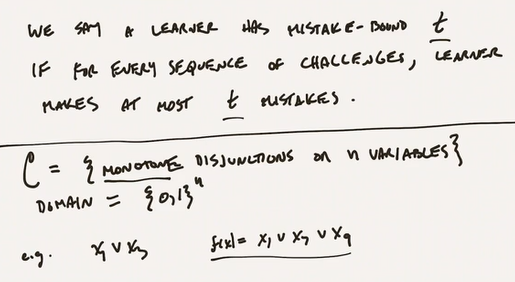 WE SAY A LEARNER HAS MISTAKE-BOUND t
IF FOR EVERY SEQUENCE OF CHALLENGES, LEARNER
MAKES AT MOST t MISTAKES.
C = { MONOTONE DISJUNCTIONS ON n VARIABLES}
DOMAIN = {0,1}ⁿ
e.g. x₁ ∨ x₃ f(x) = x₁ ∨ x₇ ∨ x₉